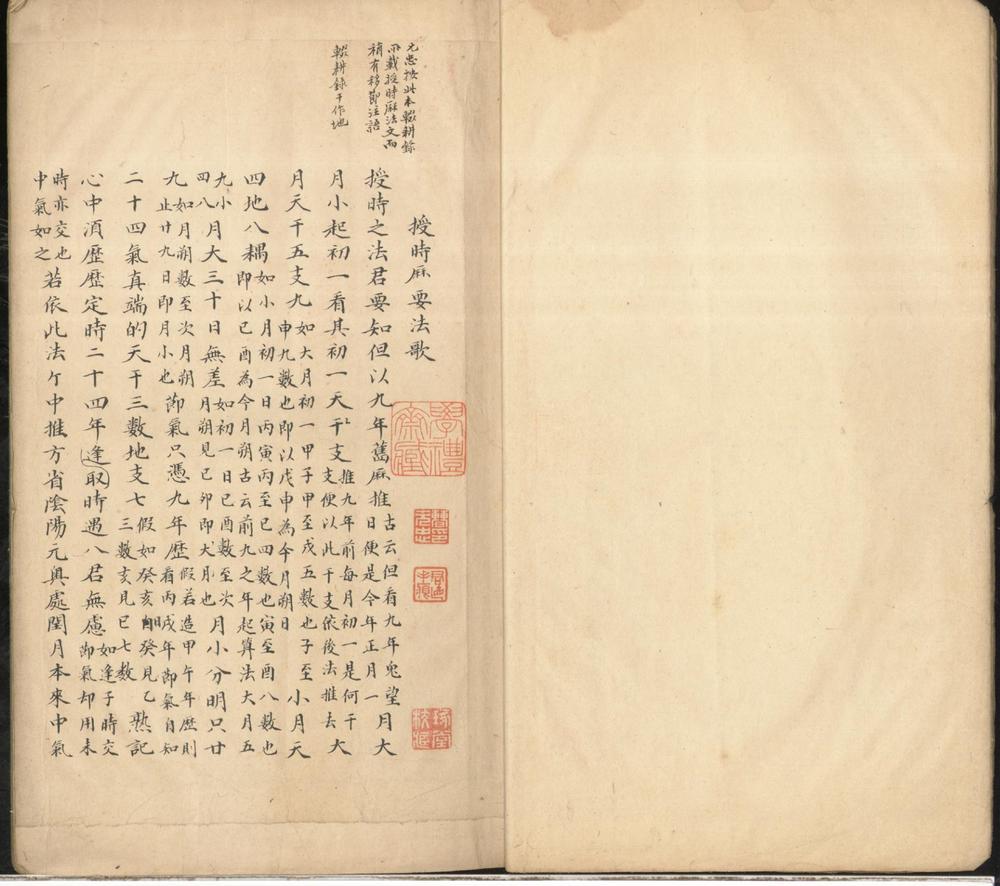 元忠按此本輟耕錄
所載授時厤法文而
稍有移節注語
輟耕錄干作地
授時厤要法歌
授時之法君要知但以九年舊厤推古云但看九年鬼望日便是今年正月一月大
月小起初一看其初一天干支推九年前每月初一是何干支便以此干支依後法推去大
月天干五支九如大月初一甲子甲至戊五數也子至申九數也即以戊申為今月朔日小月天
四地八耦如小月初一日丙寅丙至巳四數也寅至酉八數也即以巳酉為今月朔古云前九之年起算法大月五
九小四八月大三十日無差如初一日巳酉數至次月朔見已卯即大月也月小分明只廿
九如月朔數至次月朔止廿九日即月小也節氣只憑九年歷假若造甲午年歷則看丙戌年節氣自知
二十四氣真端的天干三數地支七假如癸亥自癸見乙三數亥見巳七數熟記
心中須歷歷定時二十四年逢取時遇八君無慮如逢子時交節氣却用未
時亦交也中氣如之若依此法个中推方省陰陽元奧處閏月本來中氣
學禮齋藏
曹印元忠